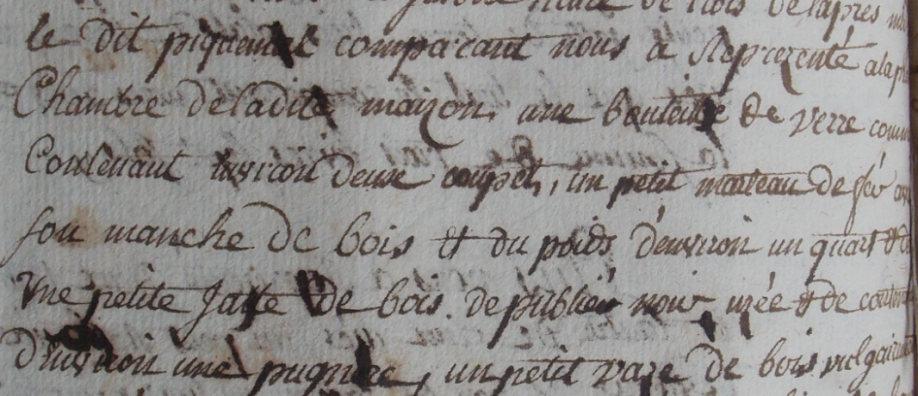 de trois de lapres
le dit piquemal comparant nous a Représenté ala
Chambre deladite maizon, une bouteille de verre
Contenant environ deux coupets, un petit marteau de fér
son manche de bois et du poids d'environ un quart
Une petite Jatte de bois de peublier noir, uzée et de
D'environ une pugnere, un petit vaze de bois